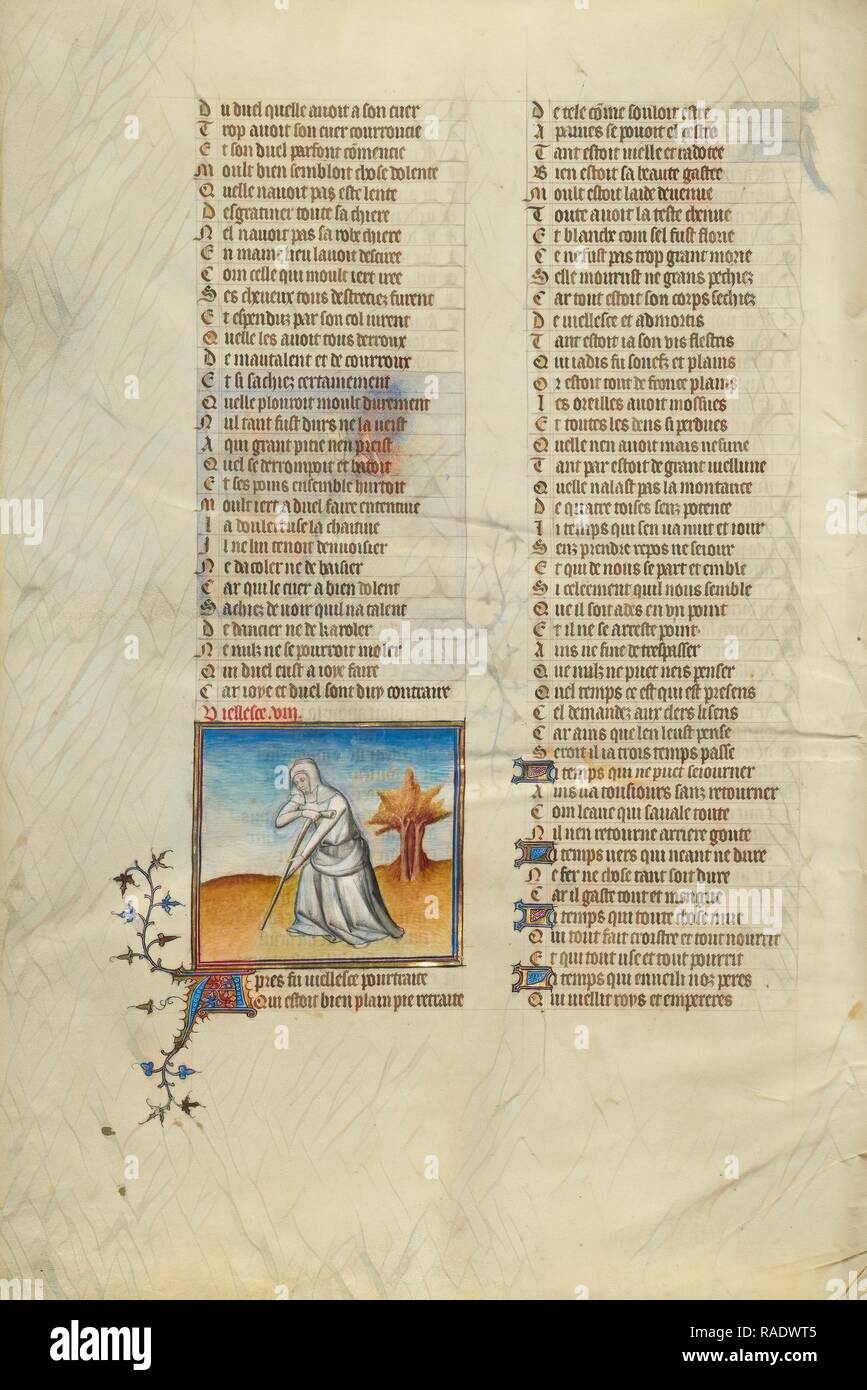 Du duel quelle auoit a son cuer
Trop auoit son cuer courroucie
Et son duel parfont cõmencie
Moult bien sembloit chose dolente
Quelle nauoit pas este lente
Desgratiner toute sa chiere
Nel nauoit pas sa robe chiere
En maint lieu lauoit desciree
Com celle qui moult iert iree
Ses cheueux tous destreciez furent
Et espenduz par son col iurent
Quelle les auoit tous derroux
De mautalent et de courroux
Et si sachiez certainement
Quelle plouroit moult durement
Nul tant fust durs ne la ueist
A qui grant pitie nen preist
Quel se derrompoit et batoit
Et ses poins ensemble hurtoit
Moult iert a duel faire ententiue
La doulereuse la chaitiue
Il ne lui tenoit denuoisier
Ne dacoler ne de baisier
Car qui le cuer a bien dolent
Sachiez de uoir quil na talent
De dancier ne de karoler
Ne nulz ne se pourroit moler
Qui duel eust a ioye faire
Car ioye et duel sont duy contraire
Viellesce .viij.
Apres fu uiellesce pourtraite
Qui estoit bien plain pie retraite
De tele cõme souloit estre
A paines se pouoit el
Tant estoit uielle et radotee
Bien estoit sa beaute gastee
Moult estoit laide deuenue
Toute auoit la teste chenue
Et blanche com sel fust florie
Ce ne fust pas trop grant morie
Selle mourust ne grans pechiez
Car tout estoit son corps sechiez
De uiellesce et admortis
Tant estoit ia son vis flestris
Qui iadis fu souefz et plains
Or estoit tout de fronce plains
Les oreilles auoit mossues
Et toutes les dens si perdues
Quelle nen auoit mais nesune
Tant par estoit de grant uiellune
Quelle nalast pas la montance
De quatre toises senz potence
Li temps qui sen ua nuit et iour
Senz prendre repos ne seiour
Et qui de nous se part et emble
Si celeement quil nous semble
Que il soit ades en vn point
Et il ne se arreste point
Ains ne fine de trespasser
Que nulz ne puet neis penser
Quel temps ce est qui est presens
Cel demandez aux clers lisens
Car ains que len leust pense
Seroit il ia trois temps passe
Li temps qui ne puet seiourner
Ains ua tousiours sanz retourner
Com leaue qui sauale toute
Nil nen retourne arriere goute
Li temps uers qui neant ne dure
Ne fer ne chose tant soit dure
Car il gaste tout et mengue
Li temps qui toute chose mue
Qui tout fait croistre et tout nourrit
Et qui tout use et tout pourrit
Li temps qui enueilli noz peres
Qui uiellit roys et empereres
alamy
Image ID: RADWT5
www.alamy.com